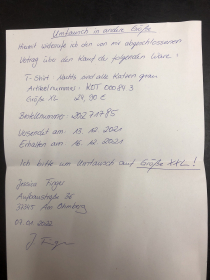 Umtausch in andere Größe
Hiermit widerrufe ich den von mir abgeschlossenen
Vertrag über den Kauf der folgenden Ware:
T-Shirt Nachts sind alle Katzen grau
Artikelnummer: KDT 00089 3
Größe XL 24,90 €
Bestellnummer: 20271785
Versendet am: 13.12.2021
Erhalten am: 16.12.2021
Ich bitte um Umtausch auf Größe XXL!
Jessica
37347 Am Ohmberg
07.01.2022